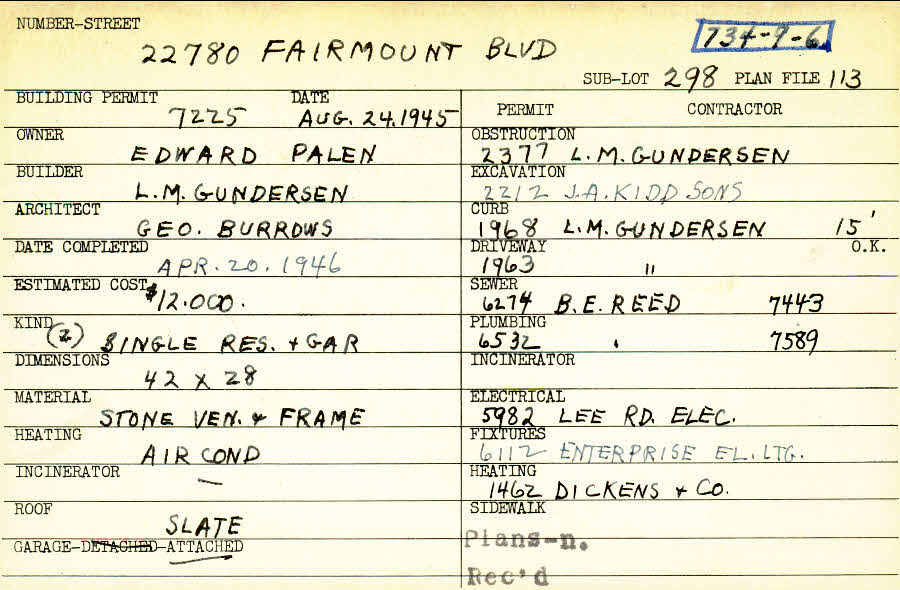 NUMBER-STREET
22780 FAIRMOUNT BLVD
734-9-6
SUB-LOT 298 PLAN FILE 113
BUILDING PERMIT DATE
7225 AUG. 24.1945
OWNER
EDWARD PALEN
BUILDER
L.M. GUNDERSEN
ARCHITECT
GEO. BURROWS
DATE COMPLETED
APR. 20. 1946
ESTIMATED COST
$12.000.
KIND
(2) SINGLE RES. + GAR
DIMENSIONS
42 X 28
MATERIAL
STONE VEN. + FRAME
HEATING
AIR COND
INCINERATOR
—
ROOF
SLATE
GARAGE-DETACHED-ATTACHED
PERMIT CONTRACTOR
OBSTRUCTION
2377 L.M. GUNDERSEN
EXCAVATION
2212 J.A. KIDD SONS
CURB
1968 L.M. GUNDERSEN 15'
DRIVEWAY O.K.
1963 "
SEWER
6274 B.E. REED 7443
PLUMBING
6532 ' 7589
INCINERATOR
ELECTRICAL
5982 LEE RD. ELEC.
FIXTURES
6112 ENTERPRISE EL. LTG.
HEATING
1462 DICKENS + CO.
SIDEWALK
Plans-n.
Rec'd